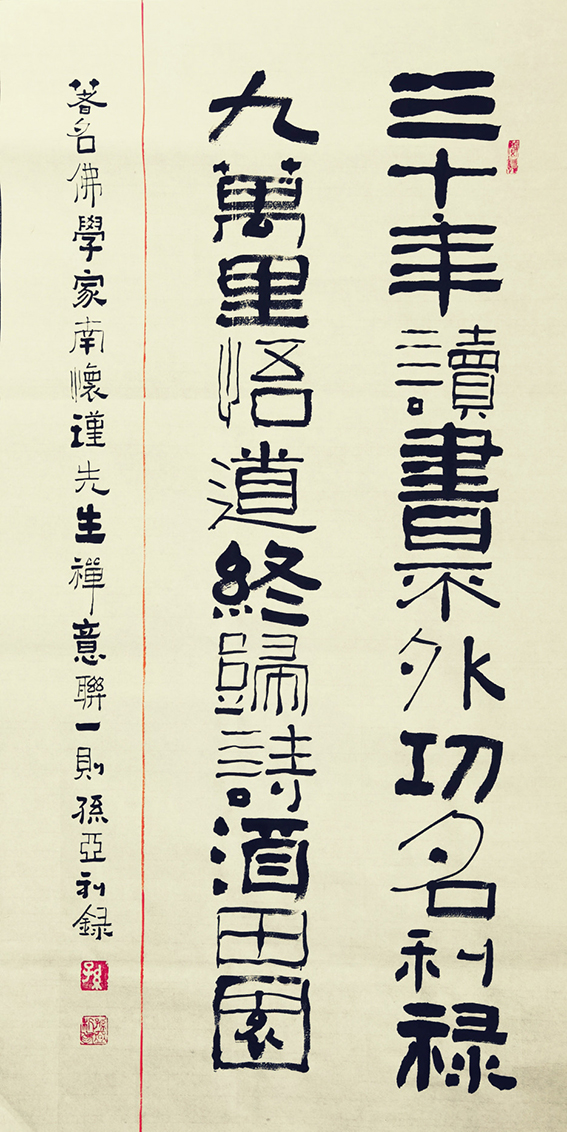 三十年讀書不外功名利禄
九萬里悟道終歸詩酒田園
著名佛學家南懷瑾先生禪意聯一則孫亞利錄